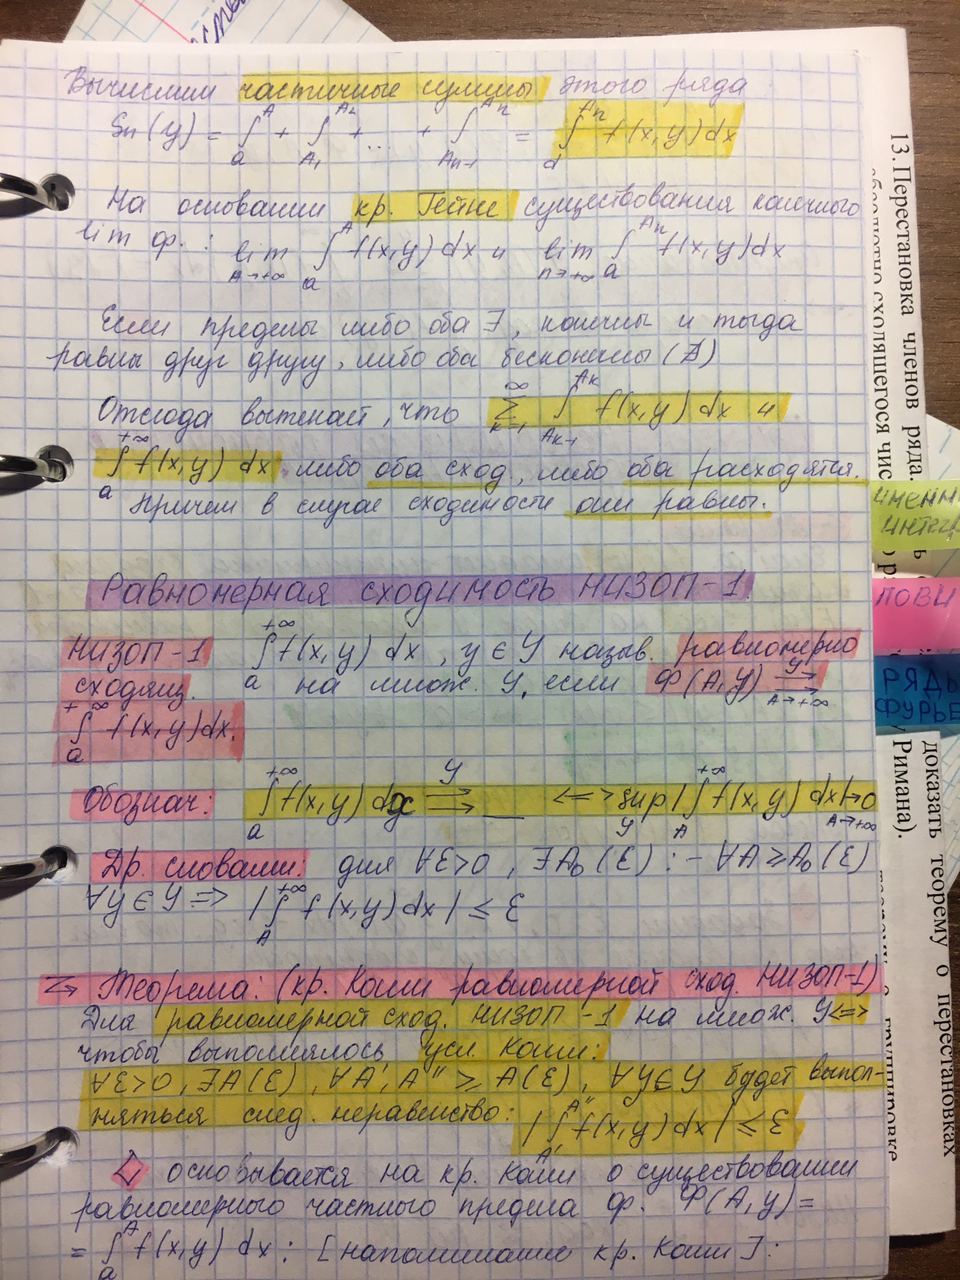 Вычислим частичные суммы этого ряда
Sn(y) = ∫_a^A + ∫_{A_1}^{A_2} + ... + ∫_{A_{n-1}}^{A_n} = ∫_a^{A_n} f(x,y)dx
На основании кр. Гейне существования конечного
lim ф.: lim_{A→+∞} ∫_a^A f(x,y) dx и lim_{n→+∞} ∫_a^{A_n} f(x,y)dx
Если пределы либо оба ∃, конечны и тогда
равны друг другу, либо оба бесконечны (∄)
Отсюда вытекает, что ∑_{k=1}^∞ ∫_{A_{k-1}}^{A_k} f(x,y) dx и
∫_a^{+∞} f(x,y) dx либо оба сход., либо оба расходятся.
Причем в случае сходимости они равны.
Равномерная сходимость НИЗОП-1.
НИЗОП-1 ∫_a^{+∞} f(x,y) dx, y ∈ Y назыв. равномерно
сходящ. на множ. Y, если Ф(A,y) ⇉^Y_{A→+∞}
∫_a^{+∞} f(x,y)dx.
Обознач: ∫_a^{+∞} f(x,y) dx ⇉^Y __ <=> sup_Y |∫_A^{+∞} f(x,y) dx| →0 _{A→+∞}
Др. словами: для ∀ε>0, ∃A₀(ε) : - ∀A ≥ A₀(ε)
∀y ∈ Y => |∫_A^{+∞} f(x,y)dx| ≤ ε
Теорема: (кр. Коши равномерной сход. НИЗОП-1)
Для равномерной сход. НИЗОП-1 на множ. Y <=>
чтобы выполнялось усл. Коши:
∀ε>0, ∃A(ε), ∀A', A'' ≥ A(ε), ∀y∈Y будет выпол-
няться след. неравенство: |∫_{A'}^{A''} f(x,y)dx| ≤ ε
основывается на кр. Коши о существовании
равномерного частного предела ф. Ф(A,y) =
= ∫_a^A f(x,y) dx: [напоминание кр. Коши]:
13. Перестановка членов ряда.
абсолютно сходящегося чис
доказать теорему о перестановках
Римана).
группировке
именн
интегр
ПОВИ
РЯДЫ
ФУРЬЕ